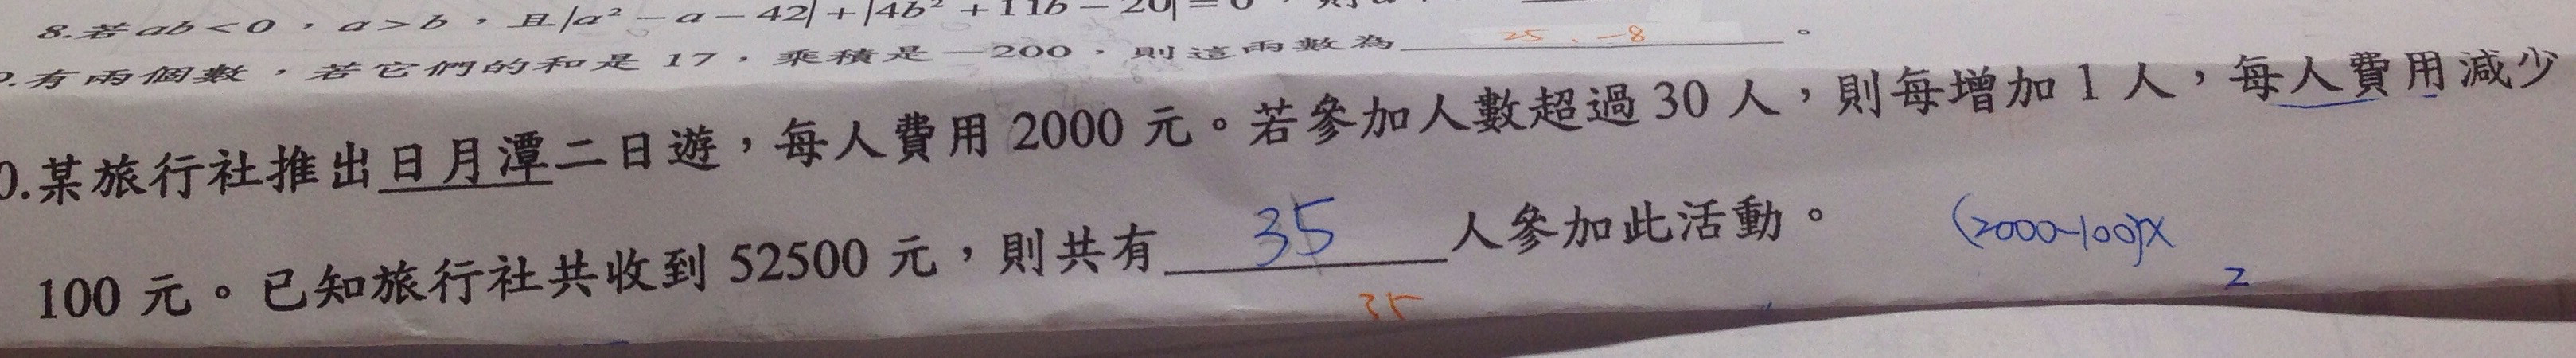 8.若ab<0，a>b，且|a²-a-42|+|4b²+11b-20|=0，則a
.有兩個數，若它們的和是17，乘積是-200，則這兩數為 25、-8 。
0.某旅行社推出日月潭二日遊，每人費用2000元。若參加人數超過30人，則每增加1人，每人費用減少
100元。已知旅行社共收到52500元，則共有 35 人參加此活動。
(2000-100)x
2
35